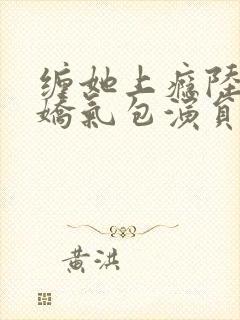 缠她上癮陸
嬌氣包演員
黃洪